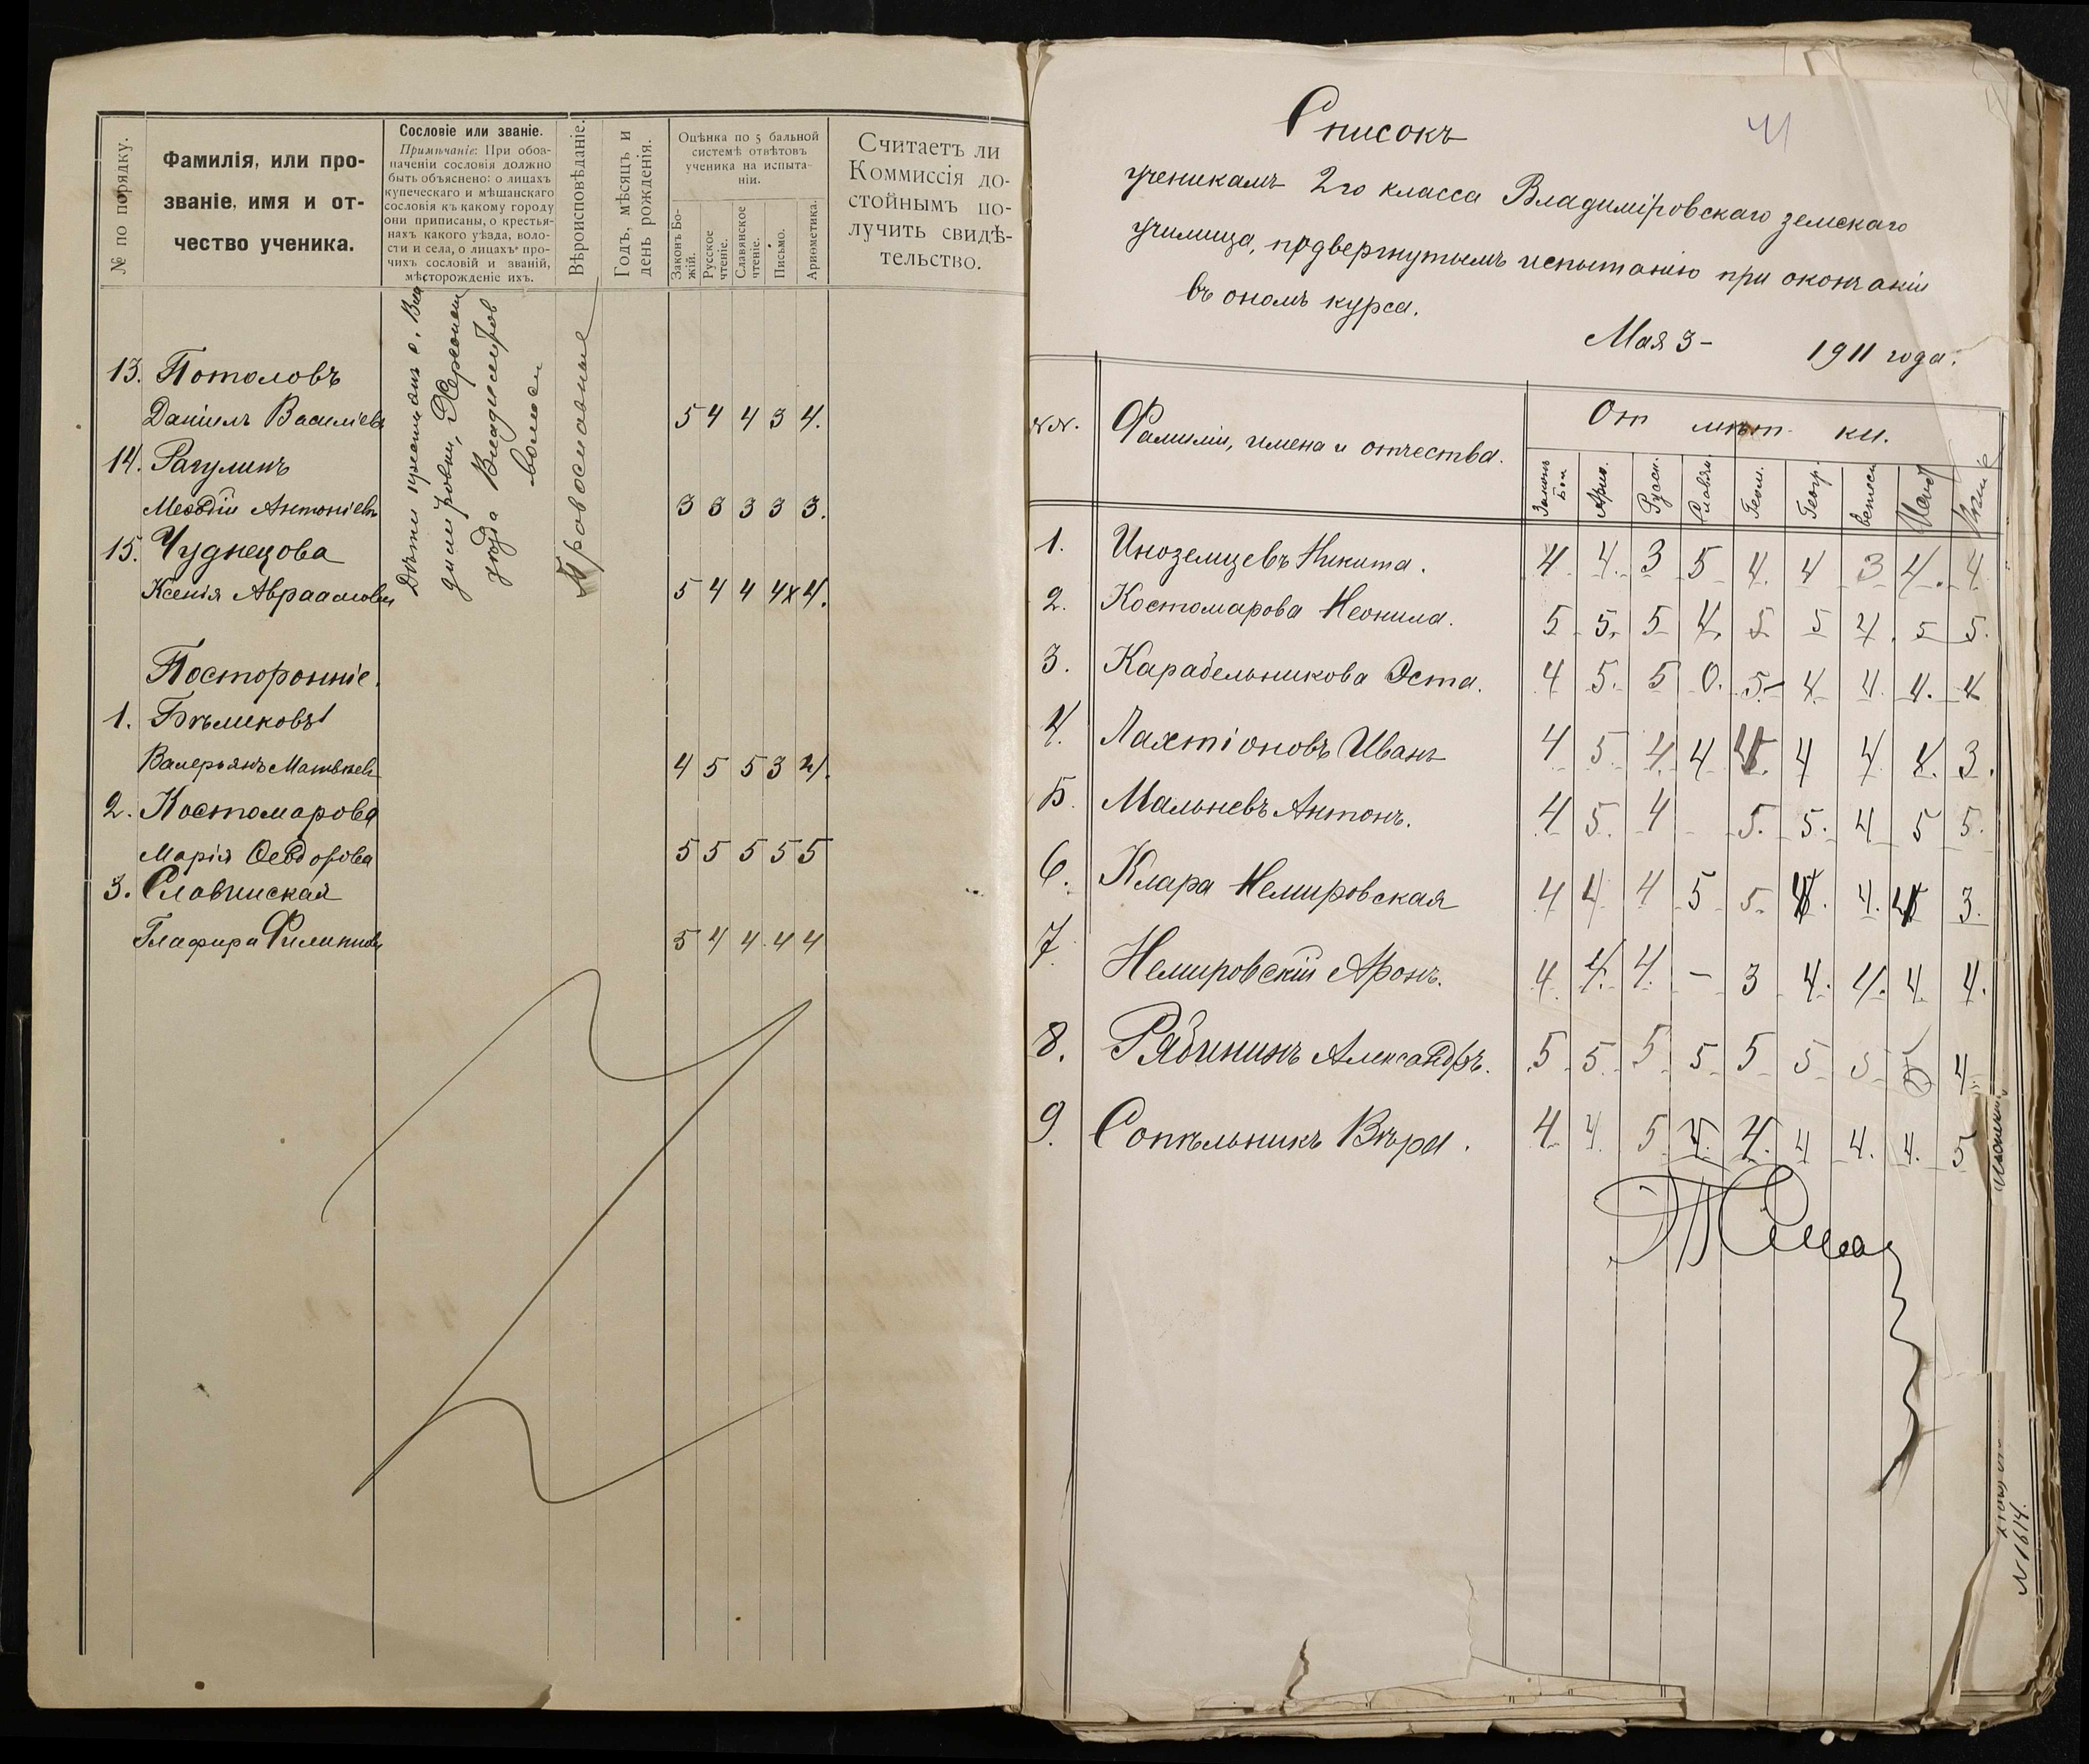 № по порядку.
Фамилія, или про-
званіе, имя и от-
чество ученика.
Сословіе или званіе.
Примѣчаніе: При обоз-
наченіи сословія должно
быть объяснено: о лицахъ
купеческаго и мѣщанскаго
сословія къ какому городу
они приписаны, о крестья-
нахъ какого уѣзда, воло-
сти и села, о лицахъ про-
чихъ сословій и званій,
мѣсторожденіе ихъ.
Вѣроисповѣданіе.
Годъ, мѣсяцъ и
день рожденія.
Оцѣнка по 5 бальной
системѣ отвѣтовъ
ученика на испыта-
ніи.
Законъ Бо-
жій.
Русское
чтеніе.
Славянское
чтеніе.
Письмо.
Ариѳметика.
Считаетъ ли
Коммиссія до-
стойнымъ по-
лучить свидѣ-
тельство.
Дѣти крестьянъ с. Вла
димировки, Херсонск
уѣзда Владиміров
волости
Православные
13. Потоловъ
Даніилъ Василіевъ 5 4 4 3 4.
14. Рагулинъ
Меѳодій Антоніевъ 3 3 3 3 3.
15. Чуднецова
Ксенія Авраамовн 5 4 4 4 х 4.
Посторонніе.
1. Бѣликовъ
Валерьянъ Матвѣев 4 5 5 3 4.
2. Костомарова
Марія Ѳеодорова 5 5 5 5 5
3. Славинская
Глафира Филиппов 5 4 4 4 4
41
Списокъ
ученикамъ 2го класса Владиміровскаго земскаго
училища, подвергнутымъ испытанію при окончаніи
въ ономъ курса.
Мая 3- 1911 года.
№№.
Фамиліи, имена и отчества.
Отмѣтки.
Законъ
Бож
Арио.
Русск.
Славян.
Геом.
Геогр.
Естест
1. Иноземцевъ Никита. 4 4. 3 5 4. 4 3 4. 4
2. Костомарова Неонила. 5 5. 5 4. 5 5 4. 5 5.
3. Карабельникова Эста. 4 5. 5 0. 5- 4 4. 4. 4
4. Лахтіоновъ Иванъ 4 5. 4. 4 4. 4 4 4. 3.
5. Мальневъ Антонъ. 4 5. 4 5. 5. 4 5 5.
6. Клара Немировская 4 4 4 5 5. 4. 4. 4 3.
7. Немировскій Аронъ. 4. 4. 4. – 3 4. 4. 4 4.
8. Рябининъ Александръ. 5 5 5 5 5 5 5 5 4.
9. Сопѣльникъ Вѣра. 4. 4 5 4. 4. 4 4. 4. 5
№1614.